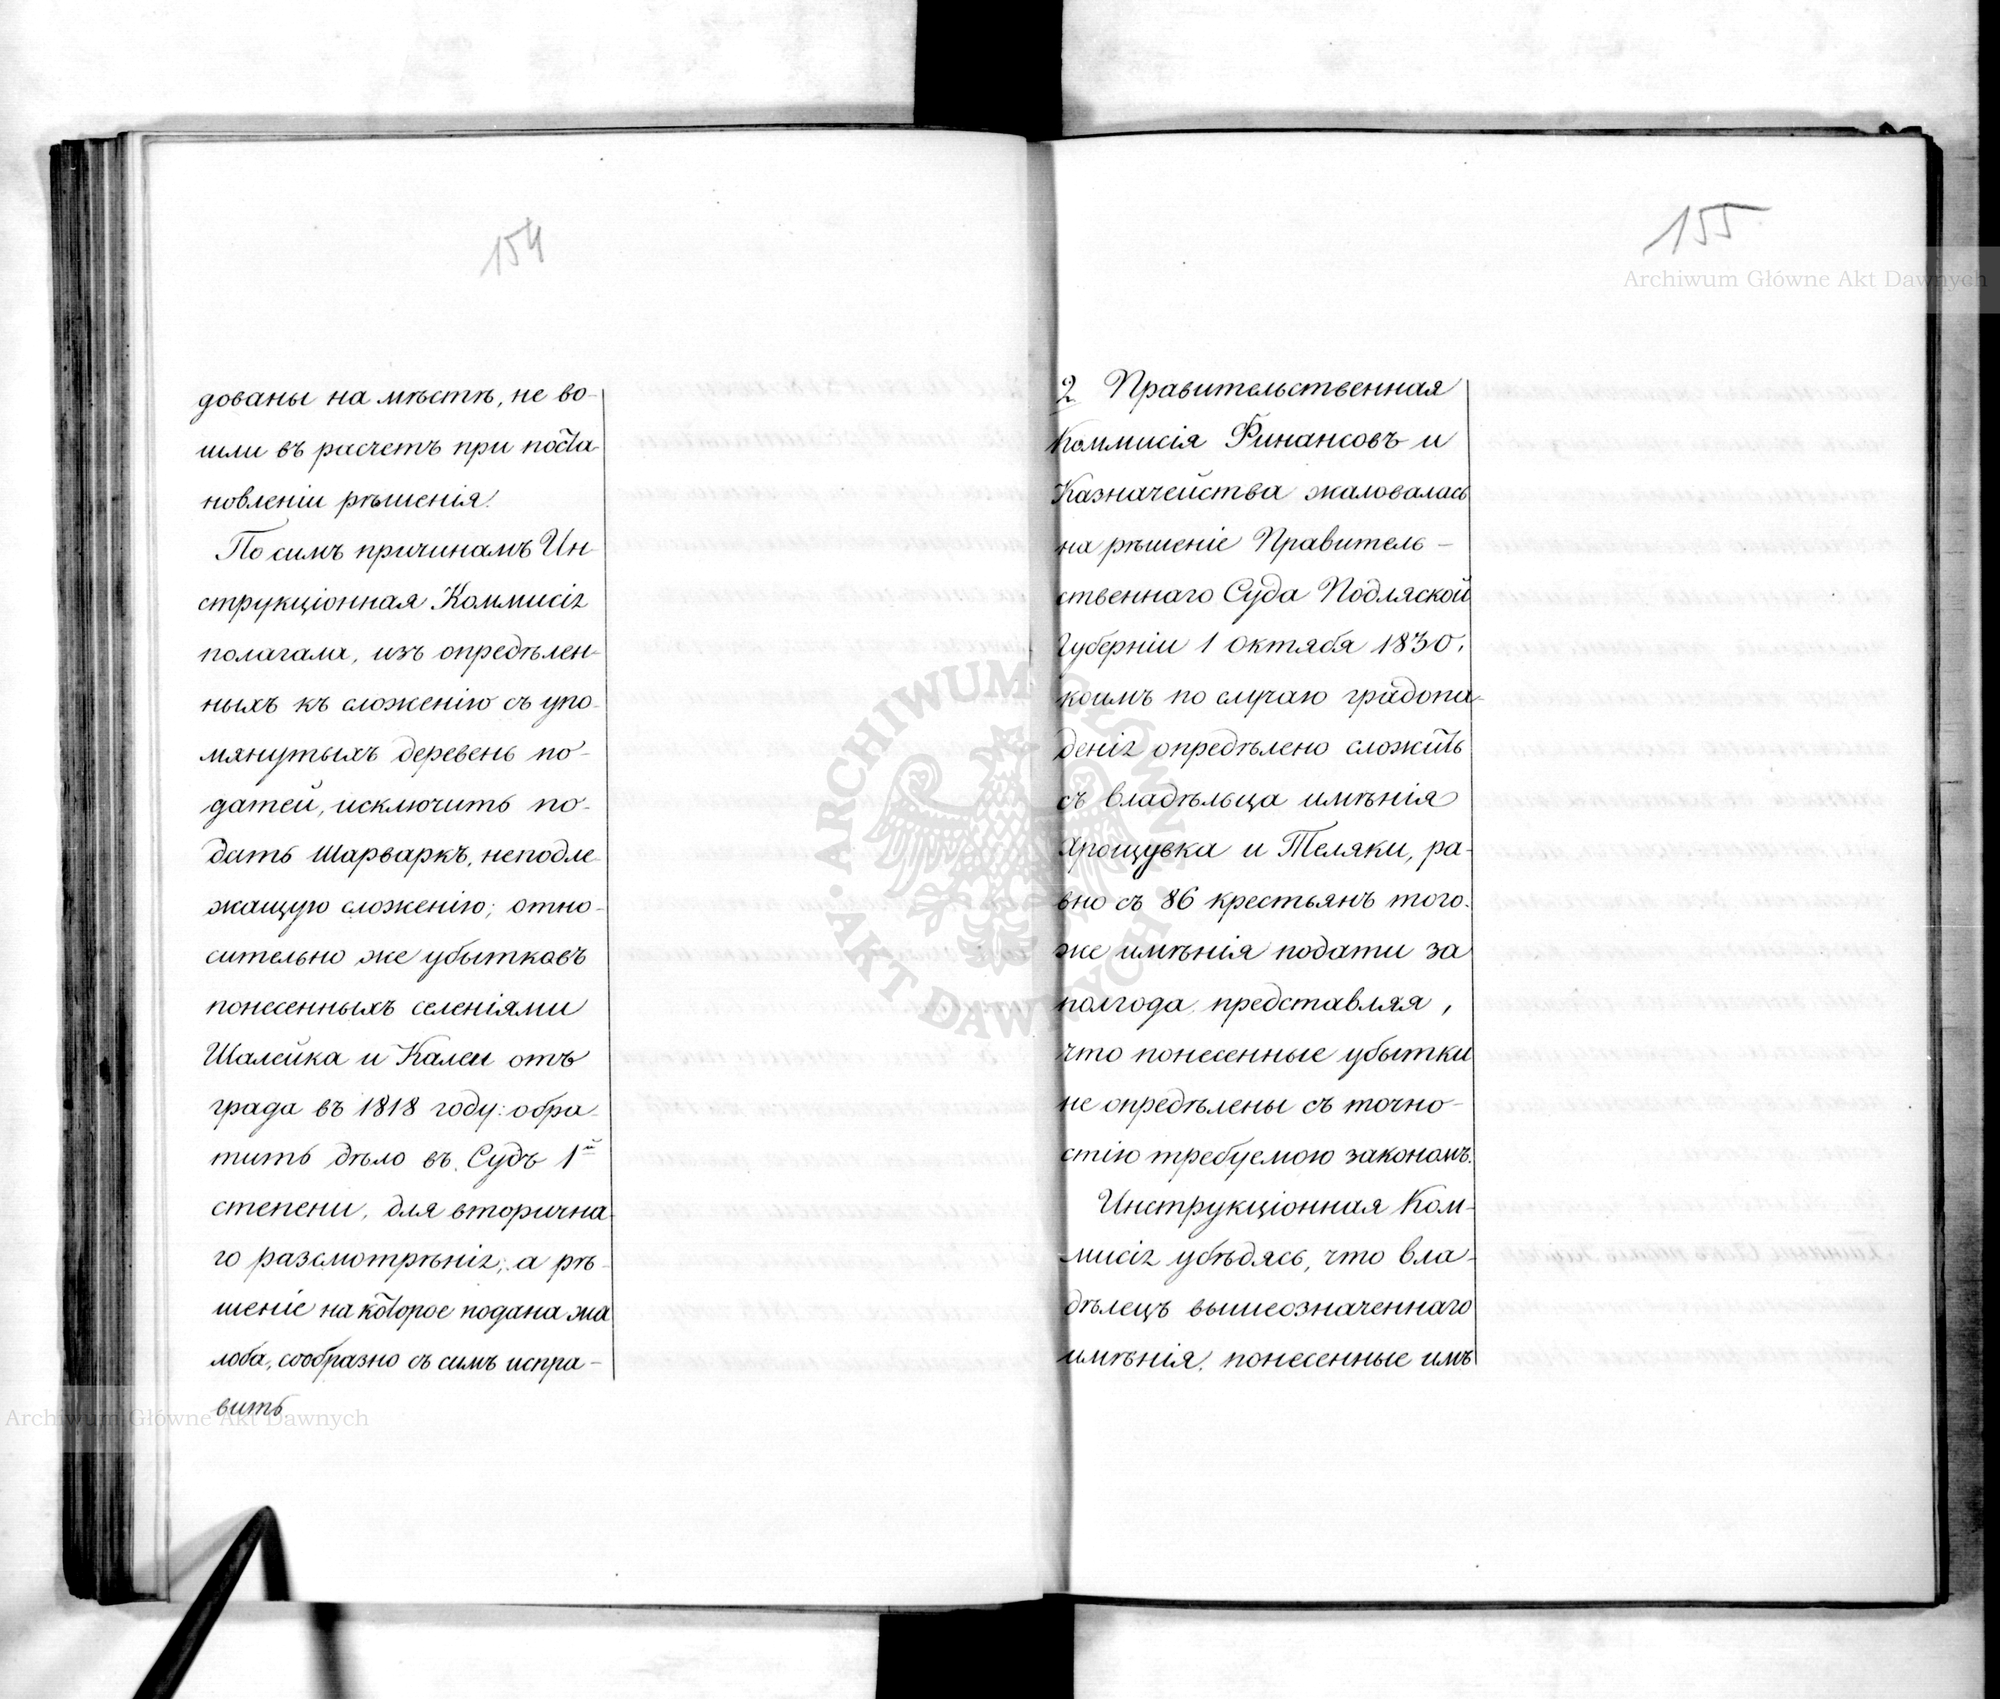 154
дованы на мѣстѣ, не во-
шли въ расчетъ при поста-
новленіи рѣшенія.
По симъ причинамъ Ин-
струкціонная Коммисія
полагала, изъ опредѣлен-
ныхъ къ сложенію съ упо-
мянутыхъ деревень по-
датей, исключить по-
дать Шарваркъ, неподле-
жащую сложенію; отно-
сительно же убытковъ
понесенныхъ селеніями
Шалейка и Калеи отъ
града въ 1818 году: обра-
тить дѣло въ Судъ 1й
степени, для вторична-
го разсмотрѣнія; а рѣ-
шеніе на которое подана жа
лоба, сообразно съ симъ испра-
вить
155
2 Правительственная
Коммисія Финансовъ и
Казначейства жаловалась
на рѣшеніе Правитель-
ственнаго Суда Подляской
Губерніи 1 Октября 1830.
коимъ по случаю градопа-
денія опредѣлено сложить
съ владѣльца имѣнія
Ярощувка и Теляки, ра-
вно съ 86 крестьянъ того-
же имѣнія подати за
полгода, представляя,
что понесенные убытки
не опредѣлены съ точно-
стію требуемою закономъ.
Инструкціонная Ком-
мисія убѣдясь, что вла-
дѣлецъ вышеозначеннаго
имѣнія, понесенные имъ
Archiwum Główne Akt Dawnych
Archiwum Główne Akt Dawnych
ARCHIWUM GŁÓWNE
AKT DAWNYCH